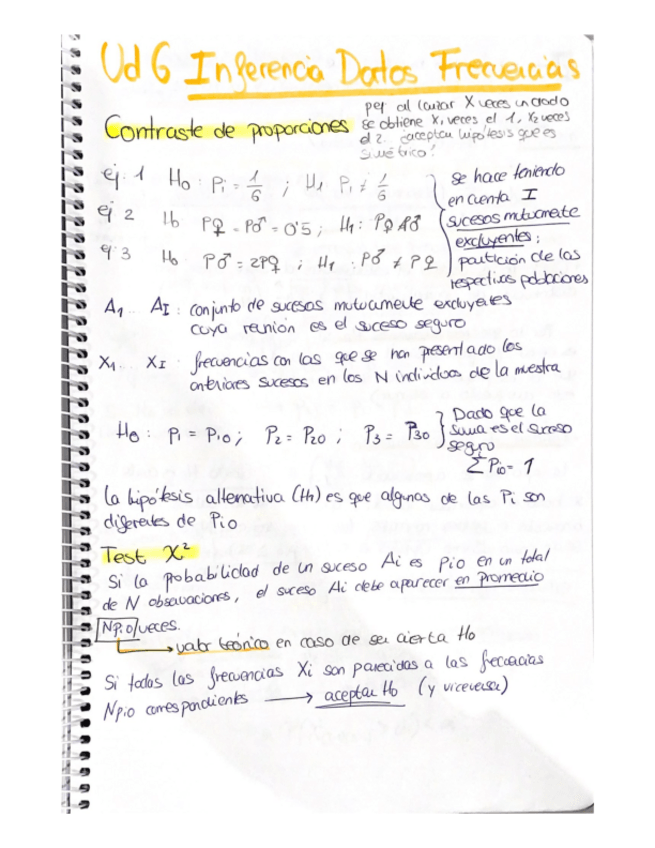 Ud 6 Inferencia Datos Frecuencias
Contraste de proporciones
pej al lanzar X veces un dado
se obtiene X₁ veces el 1, X₂ veces
el 2. ¿aceptar hipótesis que es
simétrico?
ej. 1 H₀ : Pi = 1/6 ; H₁ Pi ≠ 1/6
ej 2 H₀ P♀ = P♂ = 0'5 ; H₁ : P♀ ≠ ♂
ej 3 H₀ P♂ = 2P♀ ; H₁ : P♂ ≠ P♀
se hace teniendo
en cuenta I
sucesos mutuamente
excluyentes ;
partición de las
respectivas poblaciones
A₁ ... A_I : conjunto de sucesos mutuamente excluyentes
cuya reunión es el suceso seguro
X₁ ... X_I : frecuencias con las que se han presentado los
anteriores sucesos en los N individuos de la muestra
H₀ : P₁ = P₁₀ ; P₂ = P₂₀ ; P₃ = P₃₀
Dado que la
suma es el suceso
seguro
∑ Pi₀ = 1
La hipótesis alternativa (H₁) es que algunas de las Pi son
diferentes de Pi₀
Test χ²
Si la probabilidad de un suceso Ai es Pi₀ en un total
de N observaciones, el suceso Ai debe aparecer en promedio
NPi₀ veces.
→ valor teórico en caso de ser cierta H₀
Si todas las frecuencias Xi son parecidas a las frecuencias
NPi₀ correspondientes → aceptar H₀ (y viceversa)